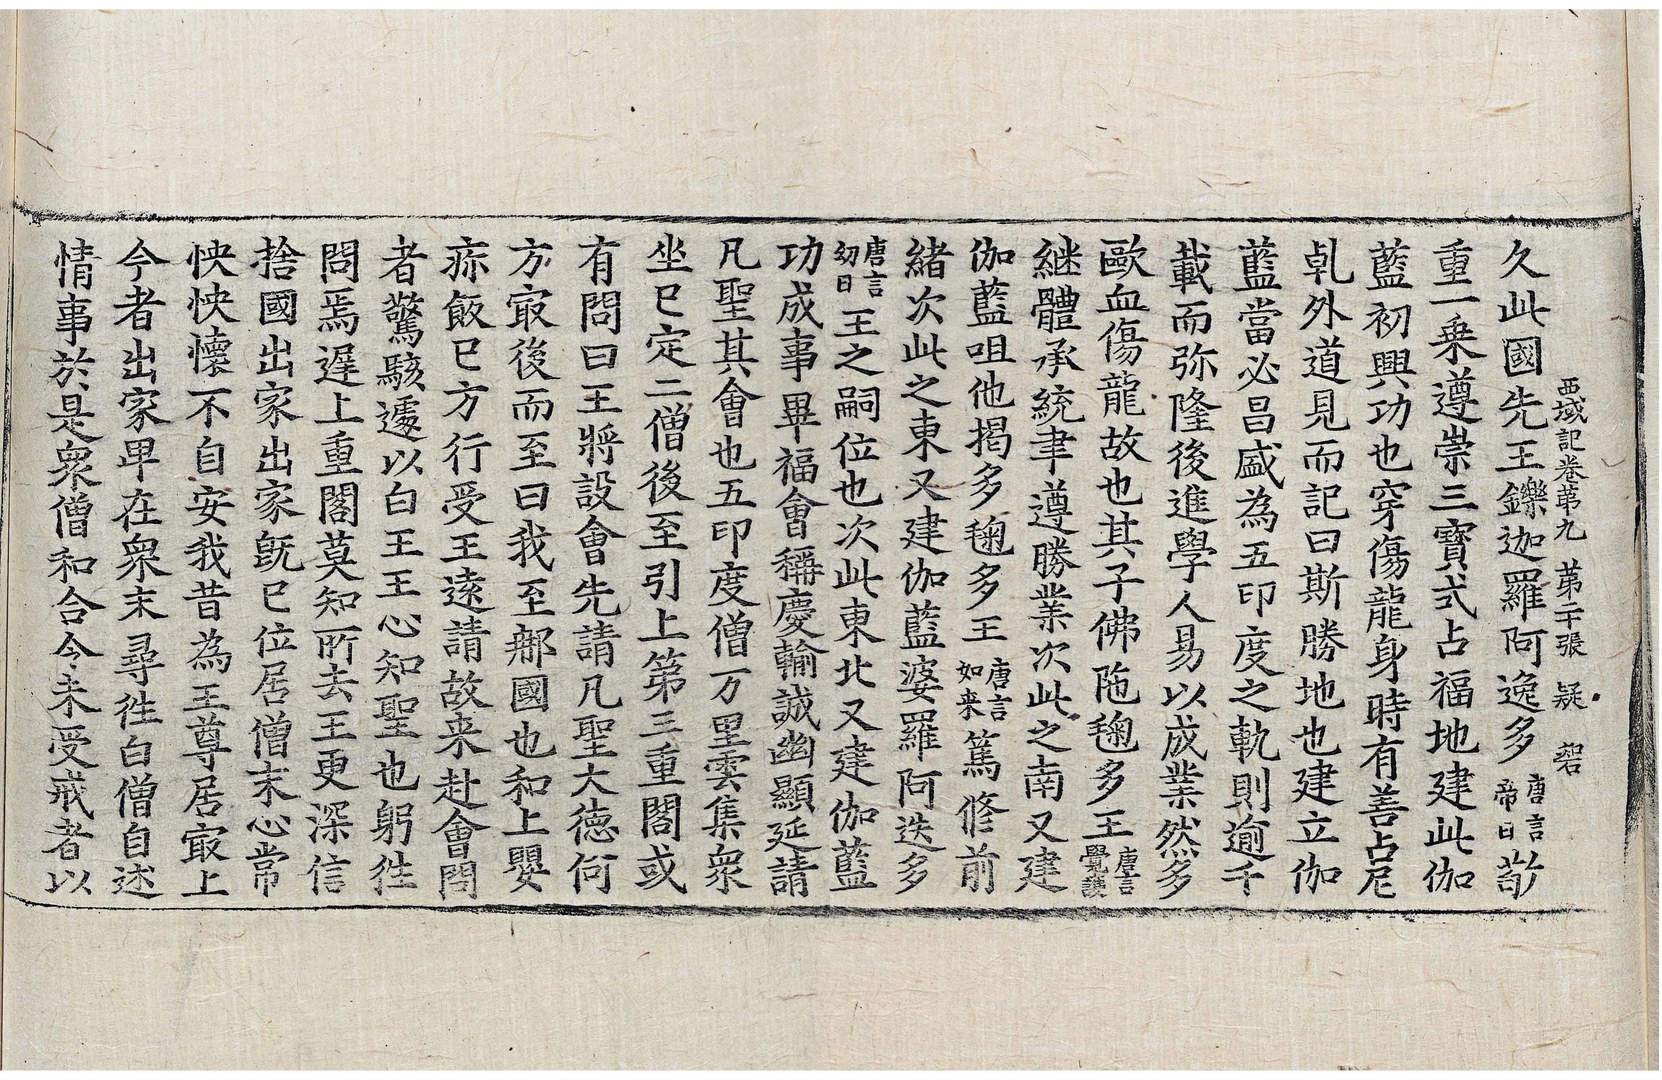 西域記卷第九 第二十張 疑
久此國先王鑠迦羅阿逸多唐言帝日敬
重一乗遵崇三寶式占福地建此伽
藍初興功也穿傷龍身時有善占尼
乹外道見而記曰斯勝地也建立伽
藍當必昌盛為五印度之軌則逾千
載而弥隆後進學人易以成業然多
歐血傷龍故也其子佛陁毱多王唐言覺護
継體承統聿遵勝業次此之南又建
伽藍呾他揭多毱多王唐言如来篤修前
緒次此之東又建伽藍婆羅阿迭多
唐言幼日王之嗣位也次此東北又建伽藍
功成事畢福會稱慶輸誠幽顯延請
凡聖其會也五印度僧万里雲集衆
坐已定二僧後至引上第三重閣或
有問曰王將設會先請凡聖大德何
方宼後而至曰我至郍國也和上嬰
疹飯已方行受王遠請故来赴會問
者驚駭遽以白王王心知聖也躬徃
問焉遅上重閣莫知所去王更深信
捨國出家出家旣已位居僧末心常
怏怏懷不自安我昔為王尊居宼上
今者出家卑在衆末尋徃白僧自述
情事於是衆僧和合令未受戒者以